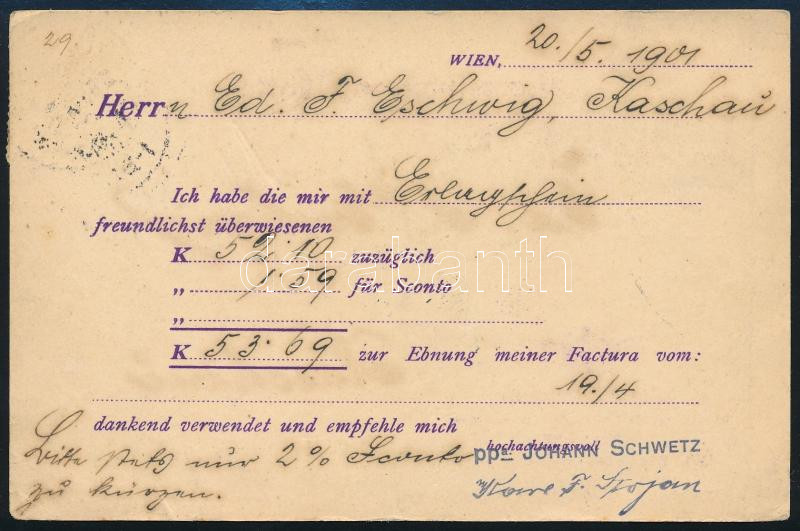 29.
WIEN, 20./5. 1901
Herrn Ed. F. Eschwig, Kaschau
Ich habe die mir mit Erlagschein
freundlichst überwiesenen
K 52.10 zuzüglich
„ 1.59 für Sconto
„
K 53.69 zur Ebnung meiner Factura vom:
19./4
dankend verwendet und empfehle mich
hochachtungsvoll
Bitte stets nur 2% Sconto
ppa JOHANN SCHWETZ
zu kürzen.
F. Stojan
darabanth